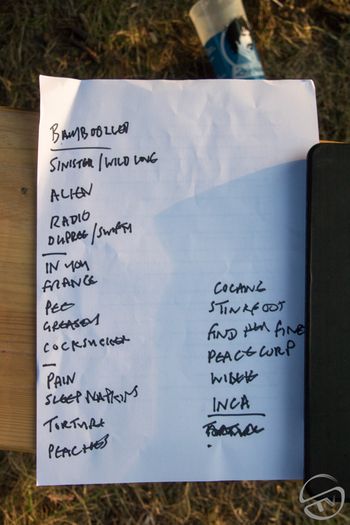 BAMBOOZLED
SINISTER/WILD LOVE
ALIEN
RADIO
DUPREE/SWIFTY
IN YOU
FRANCE
PEE
GREASED
COCKSUCKER
PAIN
SLEEP NAPKINS
TORTURE
PEACHES
COCAINE
STINKFOOT
FIND HER FINER
PEACE CORP
WILLIE
INCA
TORTURE